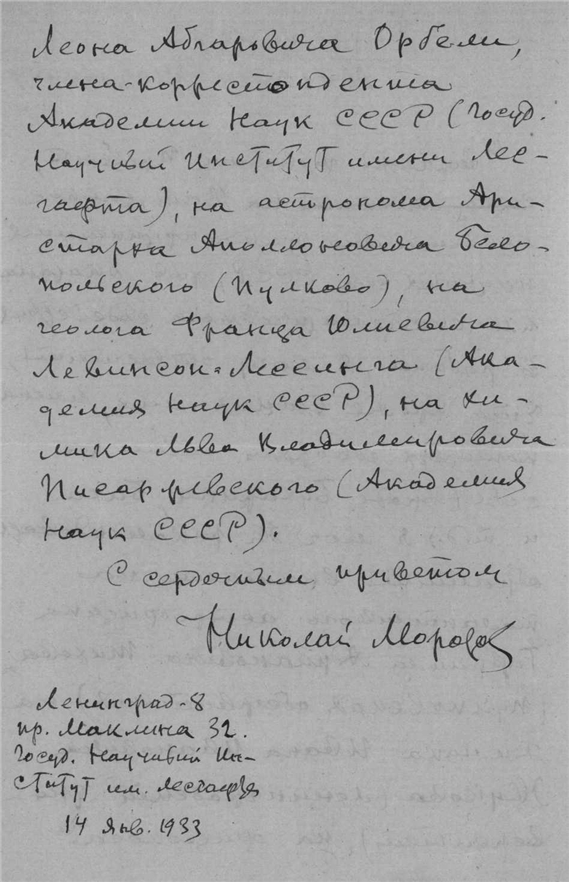 Леона Абгаровича Орбели,
члена-корреспондента
Академии Наук СССР (Госуд.
Научный Институт имени Лес-
гафта), на астронома Ари-
старха Аполлоновича Бело-
польского (Пулково), на
геолога Франца Юлиевича
Левинсон-Лессинга (Ака-
демия Наук СССР), на хи-
мика Льва Владимировича
Писаржевского (Академия
Наук СССР).
С сердечным приветом
Николай Морозов
Ленинград-8
пр. Маклина 32.
Госуд. Научный Ин-
ститут им. Лесгафта
14 янв. 1933